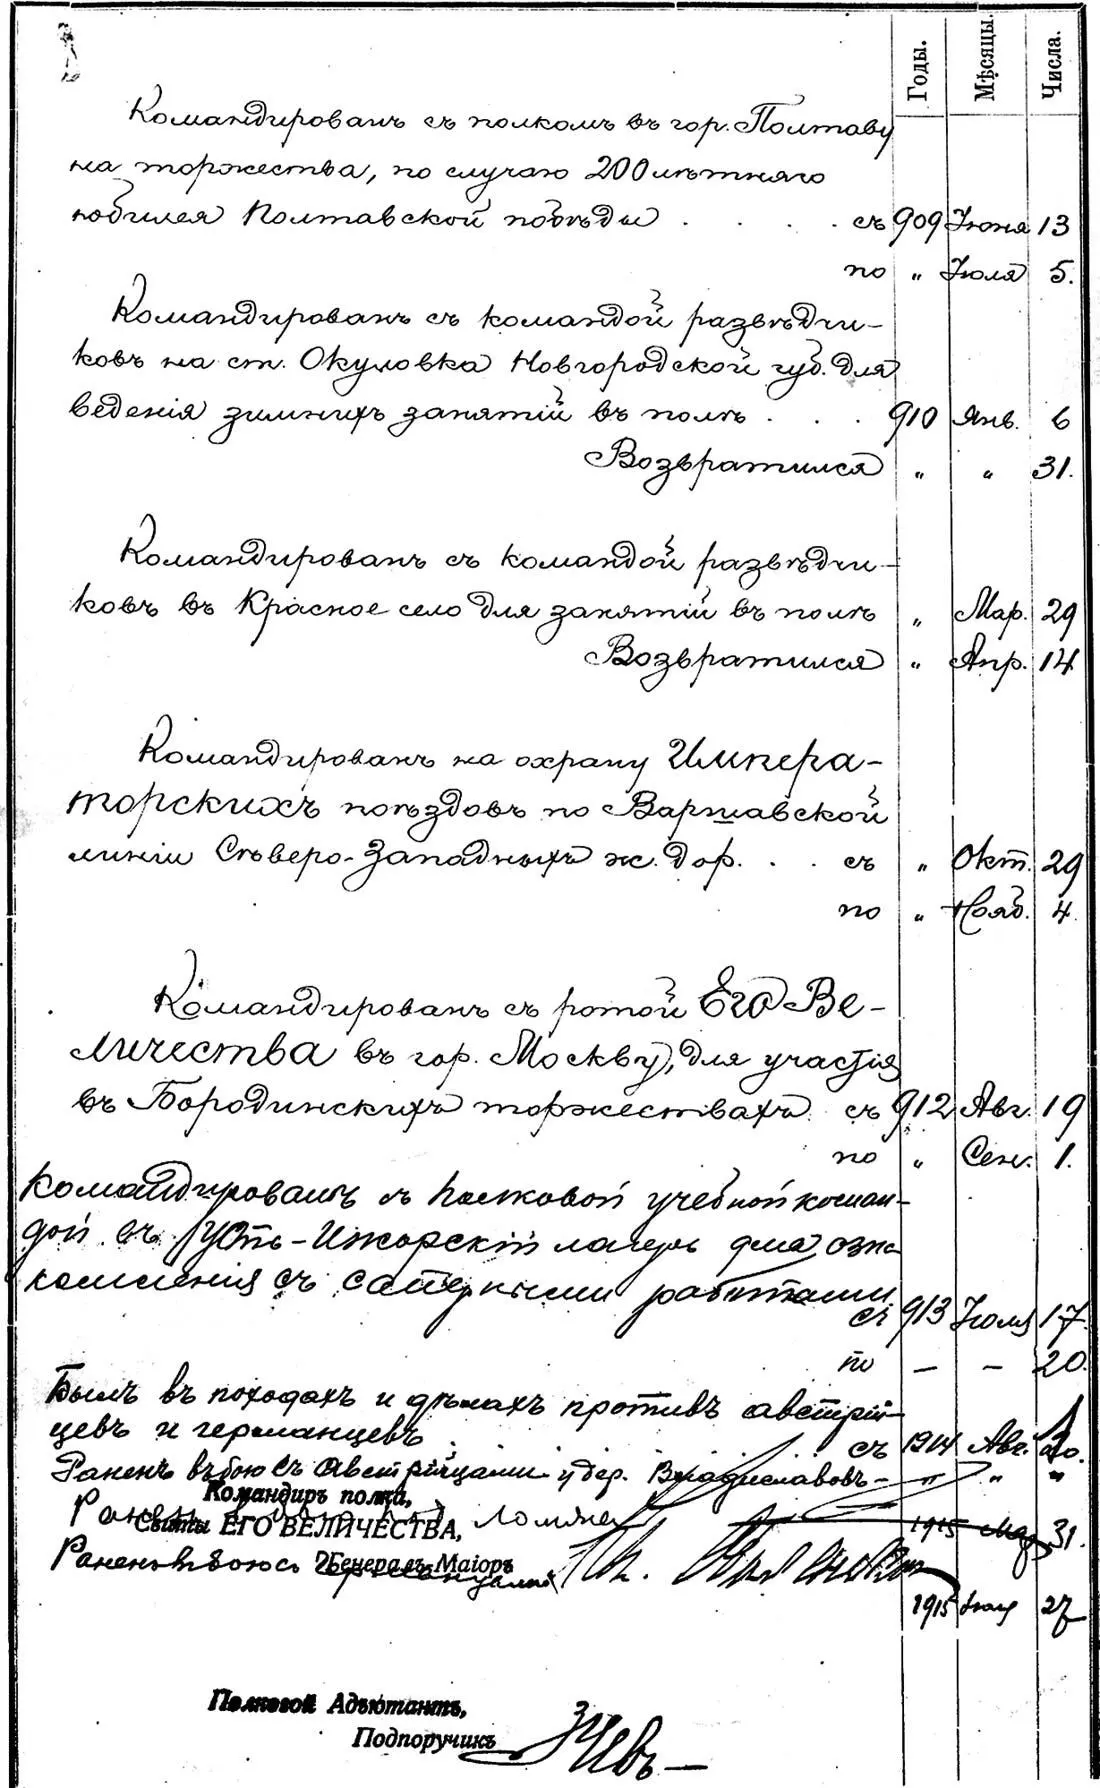 Годы. Мѣсяцы. Числа.
Командированъ съ полкомъ въ гор. Полтаву
на торжества, по случаю 200 лѣтняго
юбилея Полтавской побѣды . . . . съ 909 Июня 13
по " Июля 5.
Командированъ съ командой развѣдчи-
ковъ на ст. Окуловка Новгородской губ. для
веденія зимнихъ занятій въ полѣ . . . 910 Янв. 6
Возвратился " " 31.
Командированъ съ командой развѣдчи-
ковъ въ Красное село для занятій въ полѣ " Мар. 29
Возвратился " Апр. 14
Командированъ на охрану Импера-
торскихъ поѣздовъ по Варшавской
линіи Сѣверо-Западныхъ ж. дор. . . съ " Окт. 29
по " Нояб. 4.
Командированъ съ ротой Его Ве-
личества въ гор. Москву, для участія
въ Бородинскихъ торжествахъ съ 912 Авг. 19
по " Сен. 1.
Командированъ съ полковой учебной коман-
дой въ Усть-Ижорскій лагерь для озна
комленія съ саперными работами
съ 913 Июля 17.
по — — 20.
Былъ въ походахъ и дѣлахъ противъ австрій-
цевъ и германцевъ. съ 1914 Авг.
Раненъ въ бою съ Австрійцами у дер. Владиславовъ — " " "
Командиръ полка,
Раненъ Ломжа
Свиты ЕГО ВЕЛИЧЕСТВА, 1915 31.
Раненъ въ бою съ Германцами
Генералъ-Маіоръ
1915 Июля 27
Полковой Адъютантъ,
Подпоручикъ